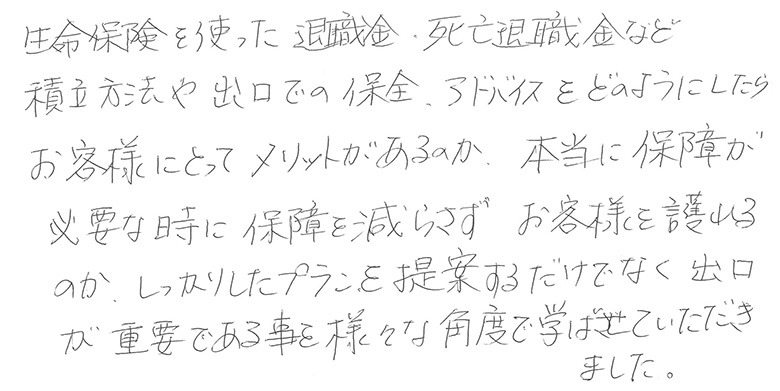 生命保険を使った退職金・死亡退職金など
積立方法や出口での保全、アドバイスをどのようにしたら
お客様にとってメリットがあるのか、本当に保障が
必要な時に保障を減らさず お客様を護れる
のか、しっかりしたプランを提案するだけでなく出口
が重要である事を様々な角度で学ばせていただき
ました。